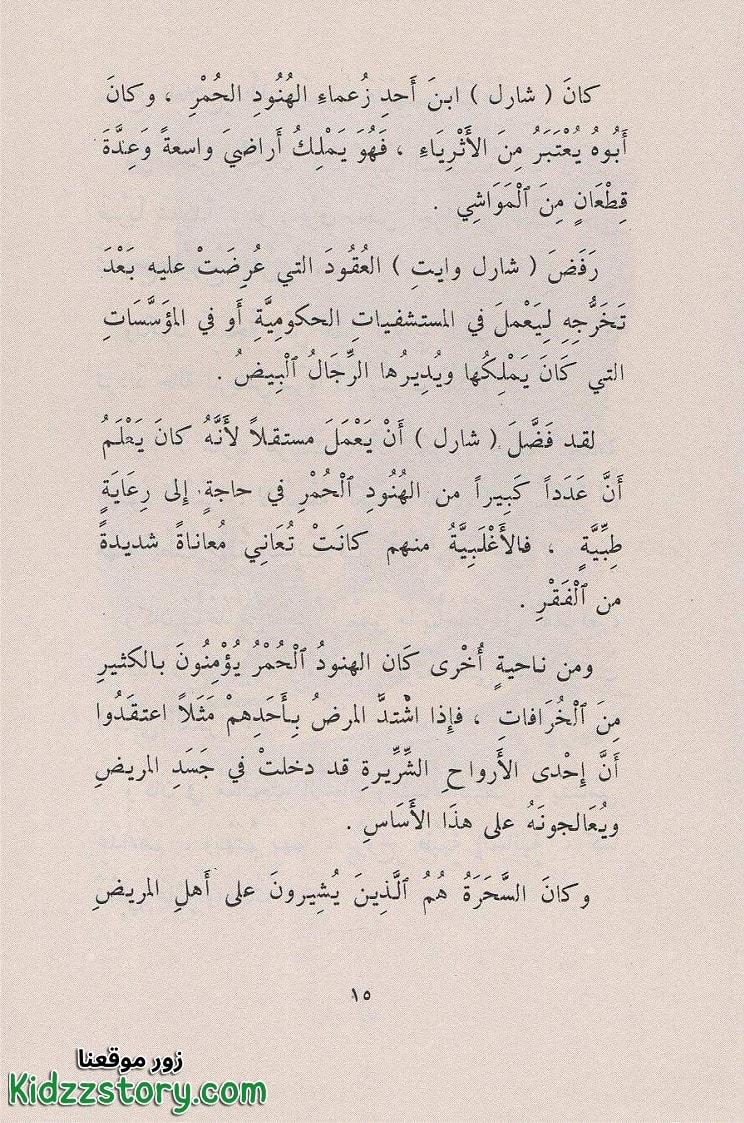 كانَ ( شارل ) ابنَ أَحدِ زُعماءِ الهُنُودِ الحُمْرِ ، وكانَ
أَبُوهُ يُعْتَبَرُ مِنَ الأَثْرِيَاءِ ، فَهُوَ يَمْلِكُ أَراضيَ واسعةً وَعِدَّةَ
قِطْعَانٍ مِنَ ٱلْمَوَاشِي .
رَفَضَ ( شارل وايتِ ) العُقُودَ التي عُرِضَتْ عليه بَعْدَ
تَخَرُّجِهِ لِيَعْملَ في المستشفياتِ الحكوميَّةِ أَو في المؤَسَّسَاتِ
التي كَانَ يَمْلِكُها ويُدِيرُها الرِّجَالُ ٱلْبِيضُ .
لقد فَضَّلَ ( شارل ) أَنْ يَعْمَلَ مستقلاً لأَنَّهُ كانَ يَعْلَمُ
أَنَّ عَدَداً كَبِيراً من الهُنُودِ ٱلْحُمْرِ في حاجةٍ إلى رِعَايَةٍ
طِبِّيَّةٍ ، فالأَغْلَبِيَّةُ منهم كانَتْ تُعَانِي مُعاناةً شديدةً
من ٱلْفَقْرِ .
ومن ناحيةٍ أُخْرى كَان الهنودُ ٱلْحُمْرُ يُؤْمِنُونَ بالكثيرِ
مِنَ ٱلْخُرَافاتِ ، فإِذا اشْتدَّ المرضُ بِأَحَدِهِمْ مَثَلاً اعتقَدُوا
أَنَّ إِحْدى الأَرواحِ الشِّرِّيرةِ قد دخلتْ في جَسَدِ المريضِ
ويُعَالجونَهُ على هذَا الأَسَاسِ .
وكانَ السَّحَرَةُ هُمُ ٱلَّذِينَ يُشِيرونَ على أَهلِ المريضِ
١٥
زور موقعنا
Kidzzstory.com